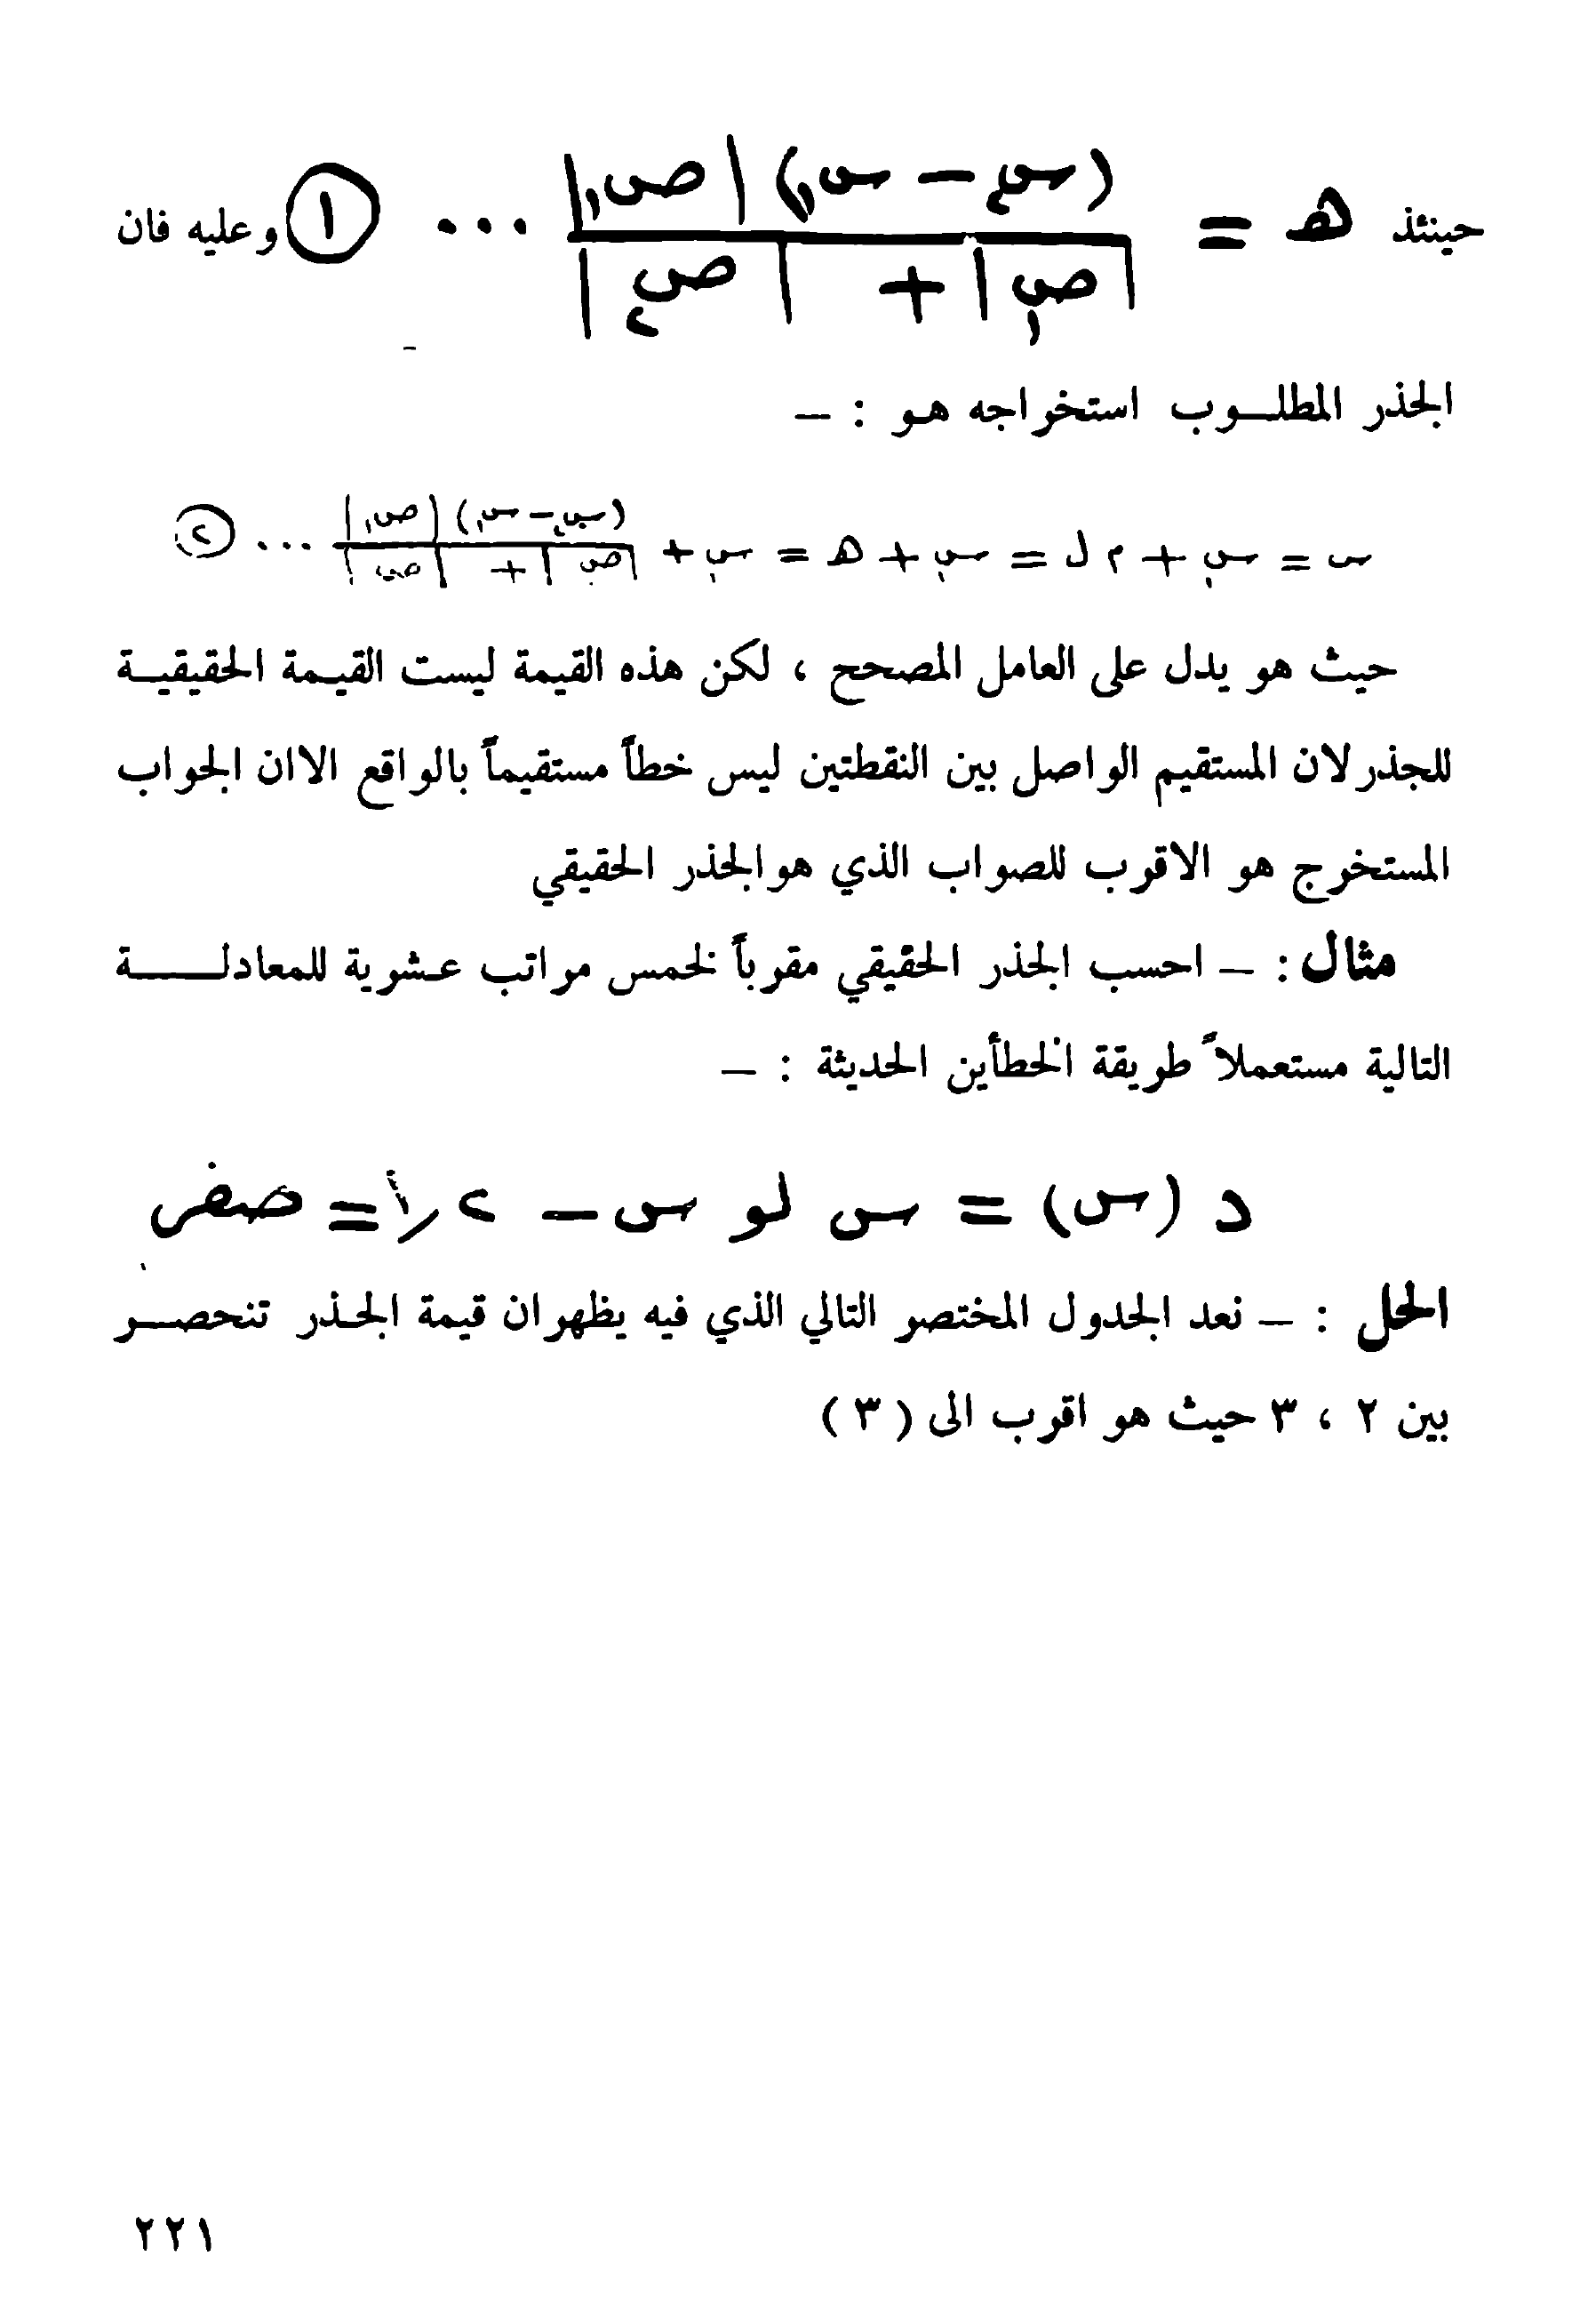 حينئذ هـ = (س٢ - س١) |ص١| / |ص١| + |ص٢| ... (١) وعليه فان
الجذر المطلوب استخراجه هو : -
س = س١ + م ل = س١ + هـ = س١ + (س٢ - س١) |ص١| / |ص١| + |ص٢| ... (٢)
حيث هو يدل على العامل المصحح ، لكن هذه القيمة ليست القيمة الحقيقية
للجذر لان المستقيم الواصل بين النقطتين ليس خطاً مستقيماً بالواقع الا ان الجواب
المستخرج هو الاقرب للصواب الذي هو الجذر الحقيقي
مثال : - احسب الجذر الحقيقي مقرباً لخمس مراتب عشرية للمعادلة
التالية مستعملاً طريقة الخطأين الحديثة : -
د (س) = س لو س - ١,٢ = صفر
الحل : - نعد الجدول المختصر التالي الذي فيه يظهر ان قيمة الجذر تنحصر
بين ٢ ، ٣ حيث هو اقرب الى ( ٣ )
٢٢١